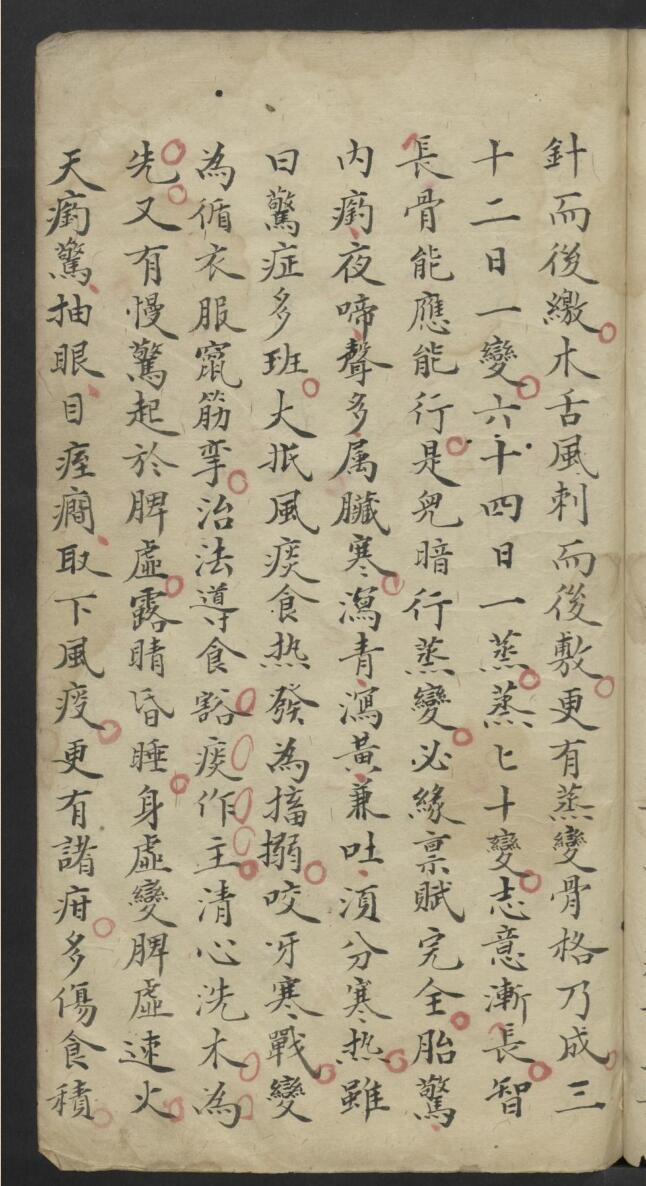 針而後繳木舌風刺而後敷更有蒸變骨格乃成三
十二日一變六十四日一蒸蒸七十變志意漸長智
長骨能應能行是兒暗行蒸變必緣禀賦完全胎驚
内瘹夜啼聲多属臟寒瀉青瀉黃兼吐湏分寒热雖
曰驚症多班大抵風痰食热發為搐搦咬呀寒戰變
為循衣服竄筋挛治法導食豁痰作主清心洗木為
先又有慢驚起於脾虛露睛昏睡身虛變脾虛速火
天瘹驚抽眼目痓癇取下風痰更有諸疳多傷食積